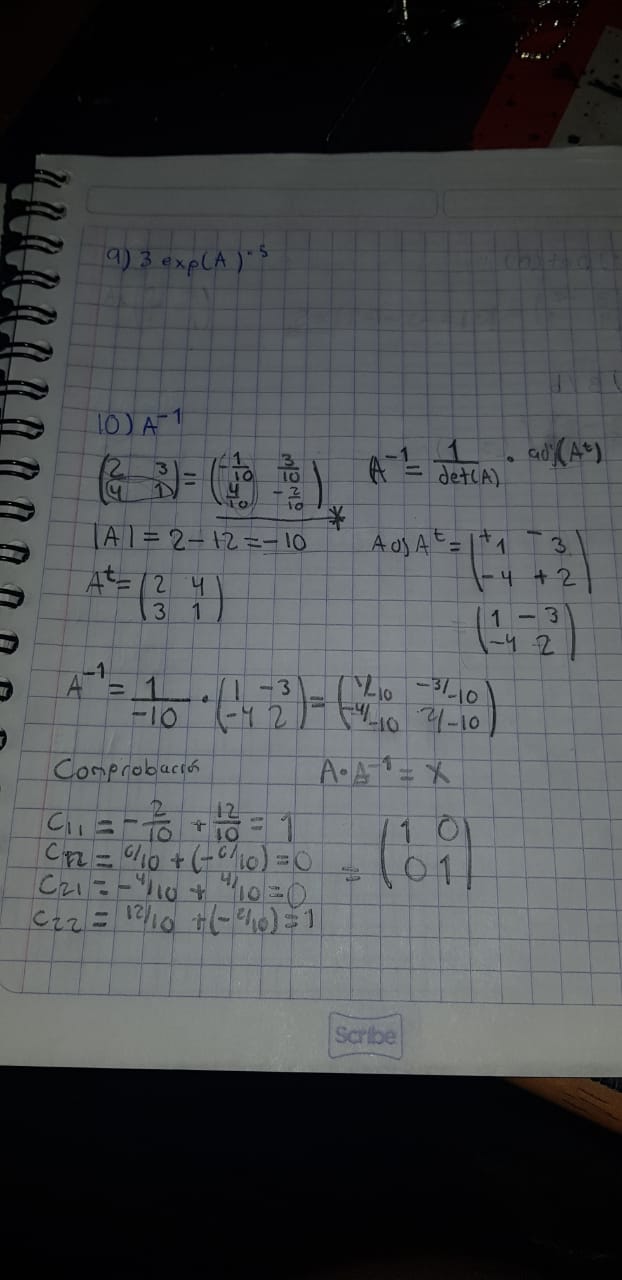 9) 3 exp(A)⁻⁵
10) A⁻¹
(2 3; 4 1) = (-1/10 3/10; 4/10 -2/10) *
A⁻¹ = 1/det(A) · adj(Aᵗ)
|A| = 2 - 12 = -10
Adj Aᵗ = (+1 -3; -4 +2)
Aᵗ = (2 4; 3 1)
(1 -3; -4 2)
A⁻¹ = 1/-10 · (1 -3; -4 2) = (1/-10 -3/-10; -4/-10 2/-10)
Comprobación A · A⁻¹ = X
C11 = -2/10 + 12/10 = 1
C12 = 6/10 + (-6/10) = 0
= (1 0; 0 1)
C21 = -4/10 + 4/10 = 0
C22 = 12/10 + (-2/10) = 1
Scribe